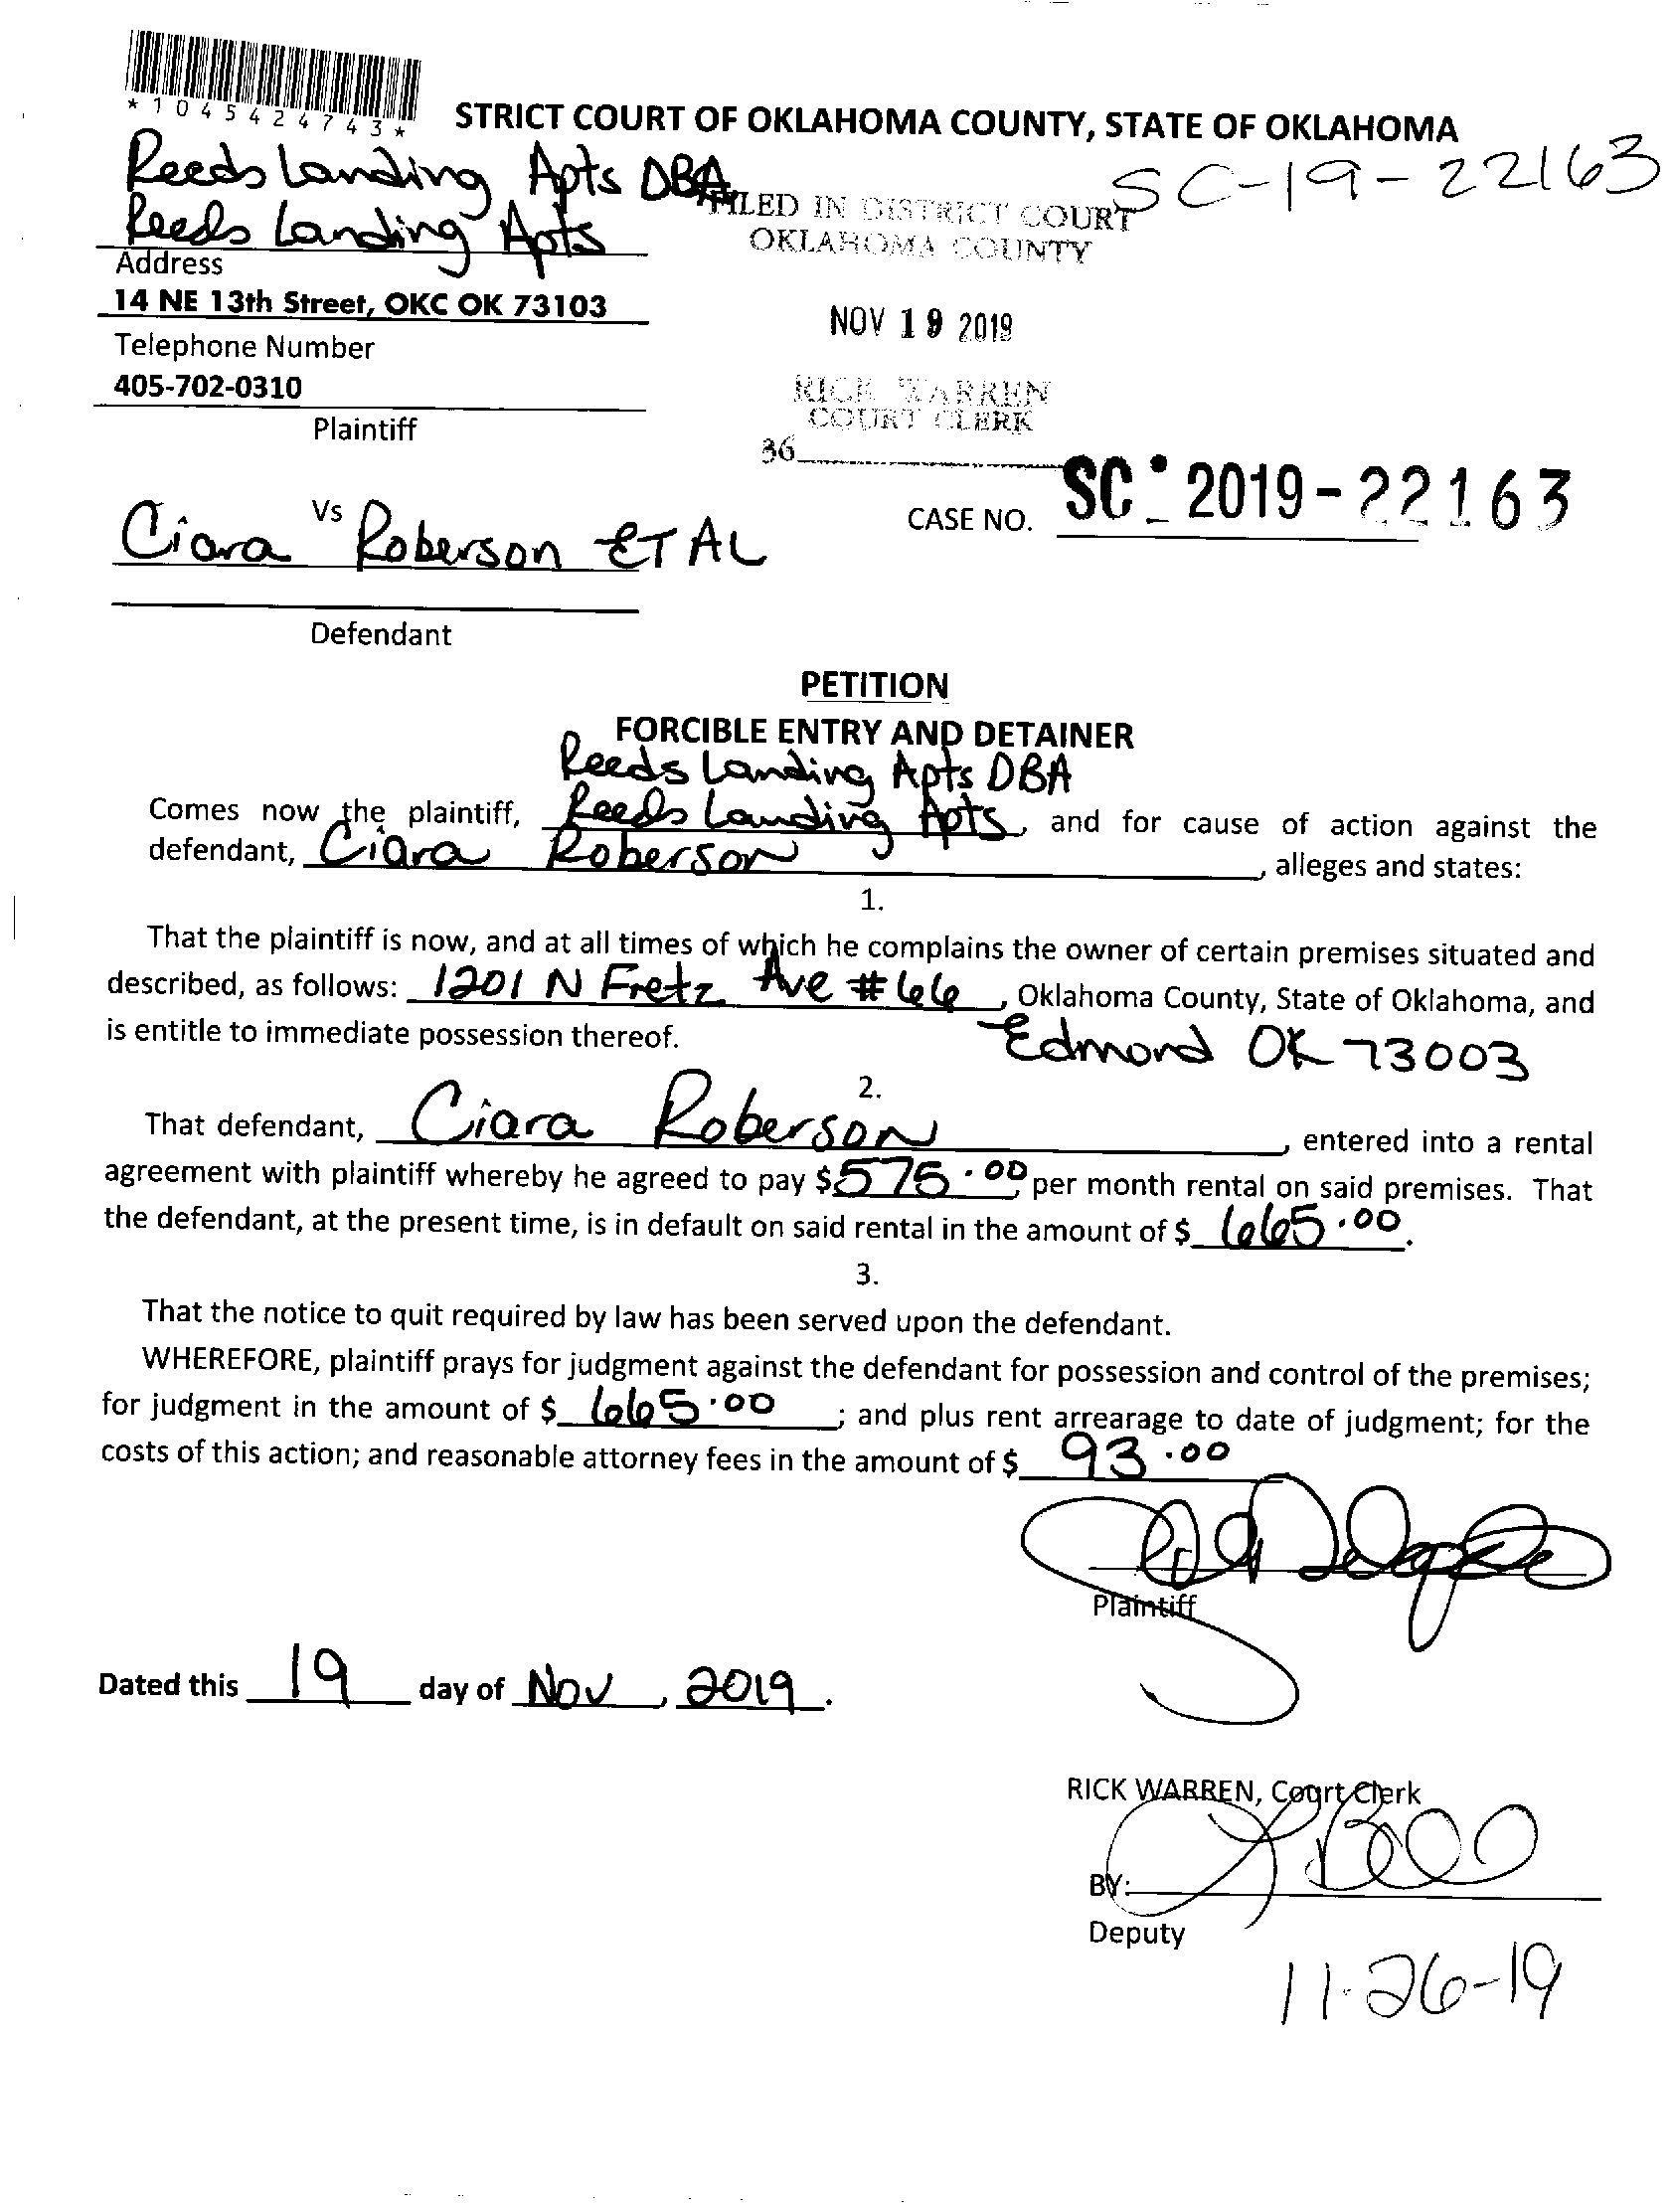 *1045424743*
STRICT COURT OF OKLAHOMA COUNTY, STATE OF OKLAHOMA
SC-19-22163
Reeds Landing Apts DBA
Reeds Landing Apts
FILED IN DISTRICT COURT
OKLAHOMA COUNTY
Address
14 NE 13th Street, OKC OK 73103
NOV 19 2019
Telephone Number
405-702-0310
RICK WARREN
COURT CLERK
Plaintiff
36
Vs
CASE NO. SC-2019-22163
Ciara Roberson ET AL
Defendant
PETITION
FORCIBLE ENTRY AND DETAINER
Reeds Landing Apts DBA
Comes now the plaintiff, Reeds Landing Apts, and for cause of action against the
defendant, Ciara Roberson, alleges and states:
1.
That the plaintiff is now, and at all times of which he complains the owner of certain premises situated and
described, as follows: 1201 N Fretz Ave #66, Oklahoma County, State of Oklahoma, and
is entitle to immediate possession thereof. Edmond OK 73003
2.
That defendant, Ciara Roberson, entered into a rental
agreement with plaintiff whereby he agreed to pay $575.00 per month rental on said premises. That
the defendant, at the present time, is in default on said rental in the amount of $ 665.00.
3.
That the notice to quit required by law has been served upon the defendant.
WHEREFORE, plaintiff prays for judgment against the defendant for possession and control of the premises;
for judgment in the amount of $ 665.00; and plus rent arrearage to date of judgment; for the
costs of this action; and reasonable attorney fees in the amount of $ 93.00
Plaintiff
Dated this 19 day of Nov, 2019.
RICK WARREN, Court Clerk
BY:
Deputy
11-26-19